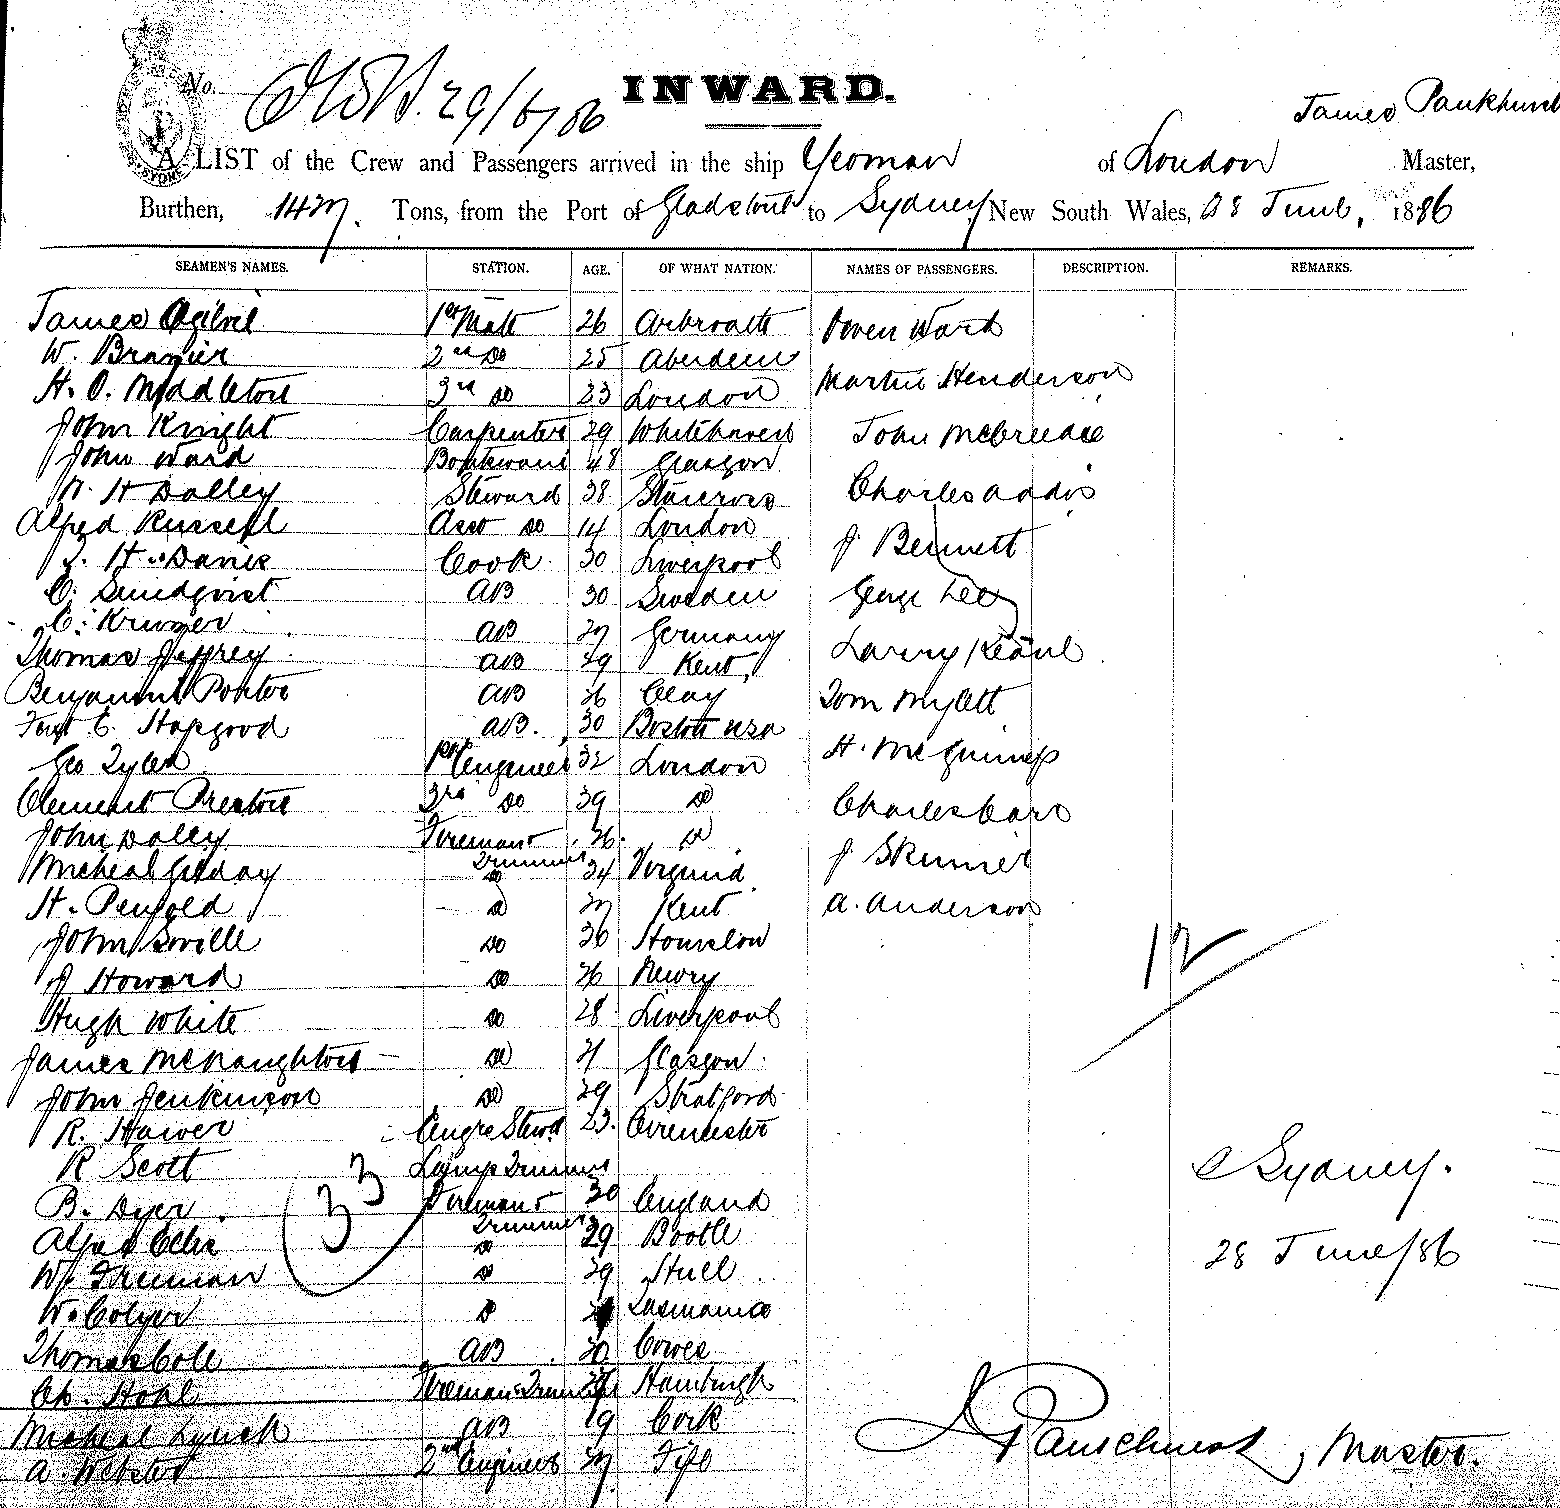 No. 29/6/86
INWARD.
James Pankhurst
A LIST of the Crew and Passengers arrived in the ship Yeoman of London Master,
Burthen, Tons, from the Port of Gladstone to Sydney New South Wales, 28 June, 1886
SEAMEN'S NAMES. STATION. AGE. OF WHAT NATION. NAMES OF PASSENGERS. DESCRIPTION. REMARKS.
James Ogilvie 1st Mate 26 Arbroath Owen Ward
W. 2nd Do 25 Aberdeen
H. O. Middleton 3rd Do 23 London Martin Henderson
John Knight Carpenter 29 Whitehaven John
John Ward Boatswain 48 Glasgow
H Dalley Steward 38 Charles Addis
Alfred Russell Asst Do 14 London
H. Davies Cook 30 Liverpool J Bennett
C. Sundqvist AB 30 Sweden George Lee
C. Kruger AB 27 Germany
Thomas Jeffrey AB 29 Kent Larry
Benjamin Porter AB 26 Clay Tom Mylett
C. Hapgood AB. 30 Boston USA
Geo Tyler 1st Engineer 32 London H. McGuiness
Clement Preston 3rd Do 39 Do Charles
John Daley Fireman & Trimmer 26 Do
Micheal Do 24 Virginia J Skinner
H. Penfold Do 27 Kent A. Anderson
John Do 26 Hounslow
J Howard Do 26 Newry
12
Hugh White Do 28 Liverpool
James McNaughton Do Glasgow
John Jenkinson Do 29 Stratford
R. Engrs Stewd 23.
R Scott Lamp Trimmer
33
B. Dyer Fireman & Trimmer 30 England
Alfred Ellis Do 29 Bootle
W. Freeman Do 29 Hull
W. Colyer Do Tasmania
Thomas Cole AB 30 Cowes
Ch. Hohl Fireman & Trimmer Hamburgh
Micheal Lynch AB 19 Cork
A. Webster 2nd Engineer 37 Fife
Sydney.
28 June/86
J Pankhurst, Master.